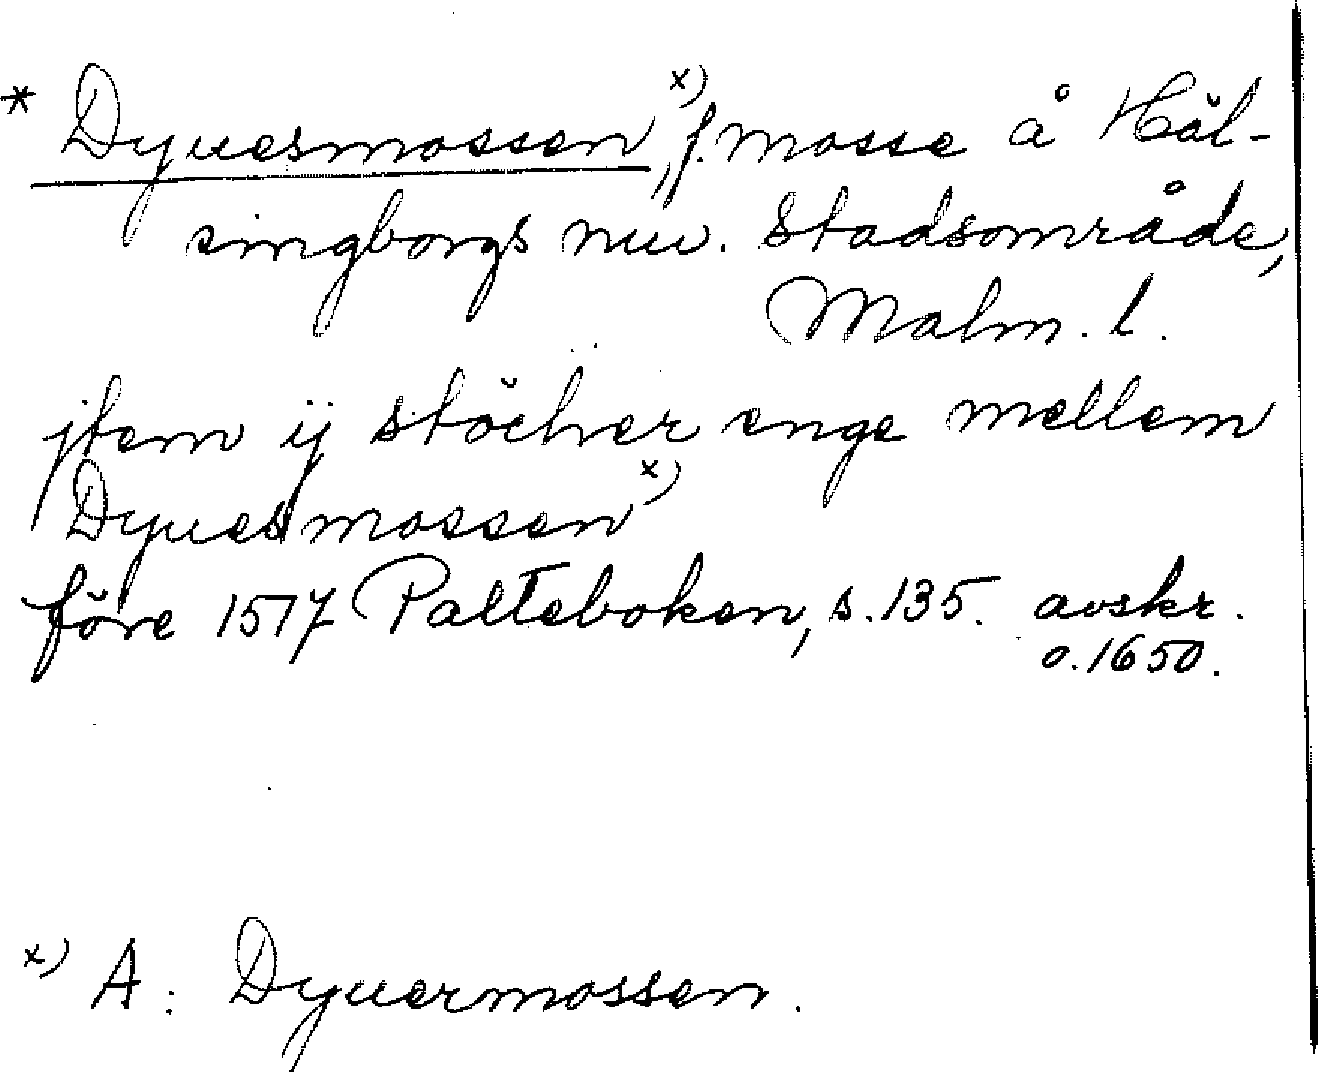 * Dyuesmossen, x) f. mosse å Häl-
singborgs nuv. stadsområde,
Malm. l.
jtem ij stöcher enge mellem
Dyuesmossen x)
före 1517 Palteboken, s. 135. avskr.
o. 1650.
x) A: Dyuermossen.